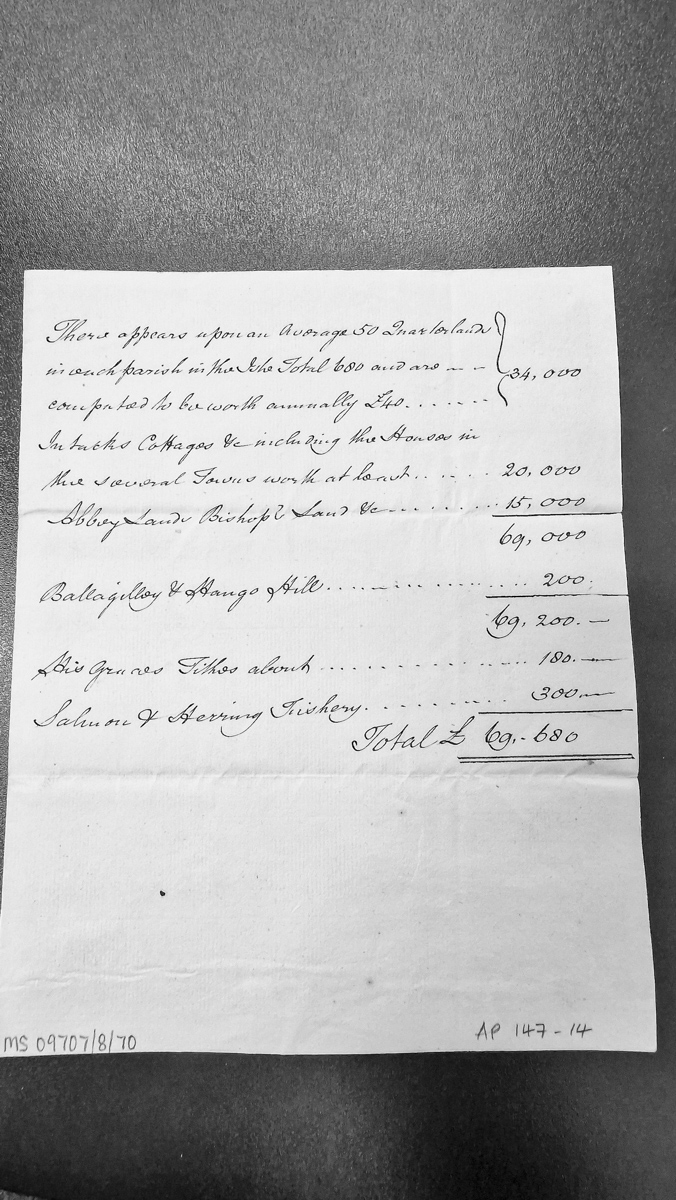 There appears upon an Average 50 Quarterlands
in each parish in the Isle Total 680 and are -- 34,000
computed to be worth annually £40.......
Intacks Cottages &c including the Houses in
the several Towns worth at least....... 20,000
Abbey Lands Bishops Land &c........ 15,000
69,000
Ballagilley & Hango Hill.................. 200.
69,200.—
His Graces Tithes about.................. 180.—
Salmon & Herring Fishery............ 300.—
Total £ 69,-680
MS 09707/8/70
AP 147-14